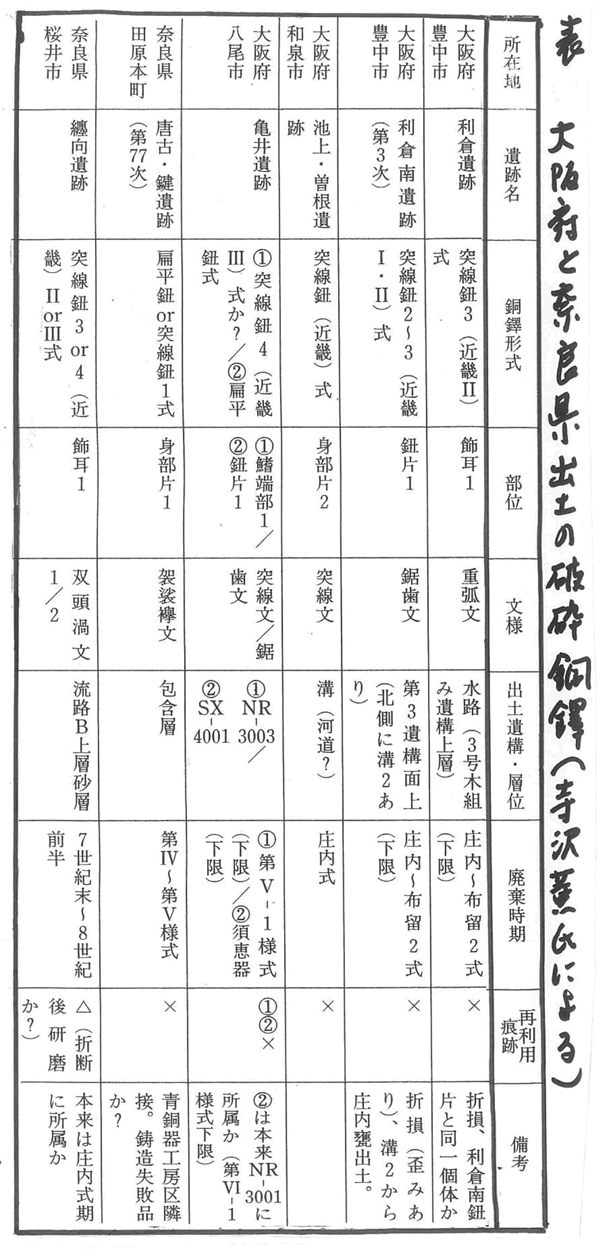 表 大阪府と奈良県出土の破砕銅鐸(寺沢薫氏による)
所在地
遺跡名
銅鐸形式
部位
文様
出土遺構・層位
廃棄時期
再利用
痕跡
備考
大阪府
豊中市
利倉遺跡
突線鈕3(近畿II)
式
飾耳1
重弧文
水路(3号木組
み遺構上層)
庄内~布留2式
(下限)
×
折損、利倉南鈕
片と同一個体か
大阪府
豊中市
利倉南遺跡
(第3次)
突線鈕2~3(近畿
I・II)式
鈕片1
鋸歯文
第3遺構面上
(北側に溝2あ
り)
庄内~布留2式
(下限)
×
折損(歪みあ
り)、溝2から
庄内甕出土。
大阪府
和泉市
池上・曽根遺
跡
突線鈕(近畿)式
身部片2
突線文
溝(河道?)
庄内式
×
大阪府
八尾市
亀井遺跡
①突線鈕4(近畿
III)式か?/②扁平
鈕式
①鰭端部1/
②鈕片1
突線文/鋸
歯文
①NR-3003/
②SX-4001
①第V-1様式
(下限)/②須恵器
(下限)
①②×
②は本来NR-3001に
所属か(第VI-1
様式下限)
奈良県
田原本町
唐古・鍵遺跡
(第77次)
扁平鈕or突線鈕1式
身部片1
袈裟襷文
包含層
第IV~第V様式
×
青銅器工房区隣
接。鋳造失敗品
か?
奈良県
桜井市
纏向遺跡
突線鈕3 or 4(近
畿)II or III式
飾耳1
双頭渦文
1/2
流路B上層砂層
7世紀末~8世紀
前半
△(折断
後研磨
か?)
本来は庄内式期
に所属か